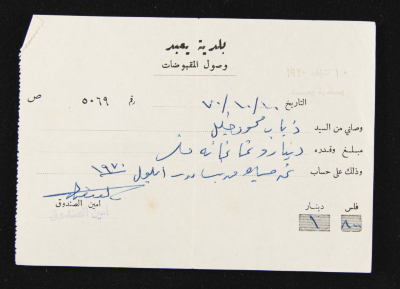 بلدية يعبد
وصول المقبوضات
التاريخ ١٠/١٠/٧٠ رقم ٥٠٦٩ ص
وصلني من السيد ذياب محمود خليل
مبلغ وقدره دينار وثمانمائة فلس
وذلك على حساب ثمن مياه ايلول ١٩٧٠
امين الصندوق
امين الصندوق
فلس دينار
٨٠٠ ١